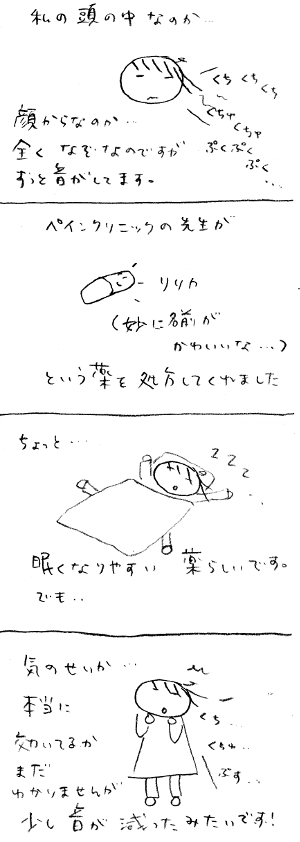 私の頭の中なのか…
くち くち くち
くちゅ
くちゅ
ぷくぷく
ぷく
…
顔からなのか…
全くなぞなのですが
ずっと音がしてます。
ペインクリニックの先生が
リリカ
(妙に名前が
かわいいな…)
という薬を処方してくれました
ちょっと…
zzz
眠くなりやすい 薬らしいです。
でも..
気のせいか…
本当に
効いてるか
まだ
わかりませんが
くち…
くちゅ…
ぷす…
少し音が減ったみたいです!